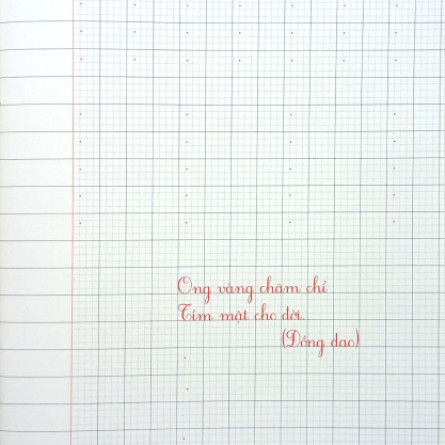 Ong vàng chăm chỉ
Tìm mật cho đời.
(Đồng dao)